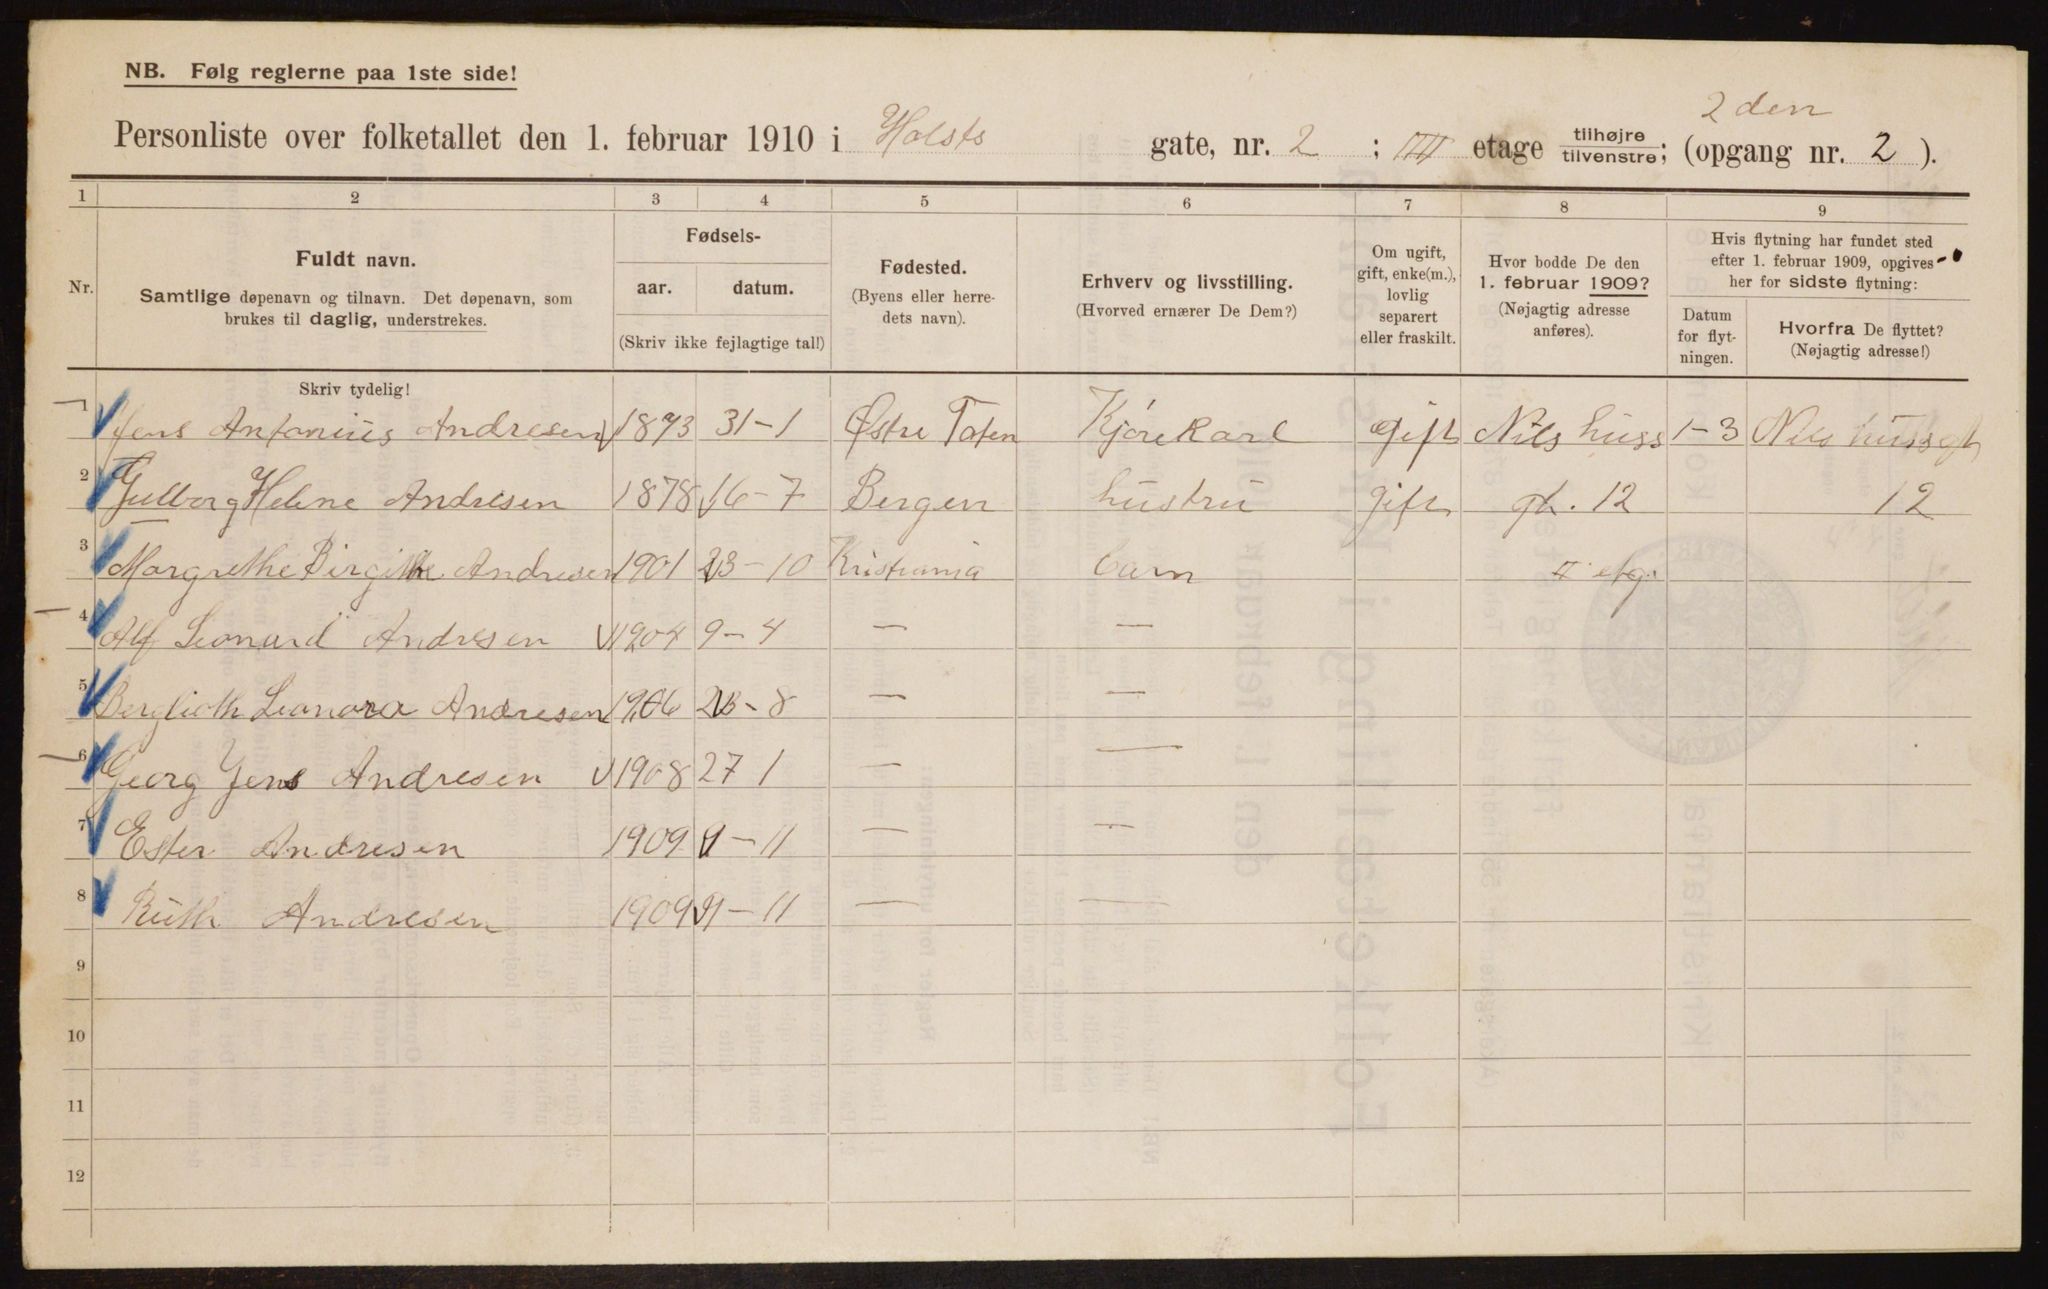 NB. Følg reglerne paa 1ste side!
2 den
Personliste over folketallet den 1. februar 1910 i Holsts gate, nr. 2 ; III etage tilhøjre/tilvenstre; (opgang nr. 2 ).
1 2 3 4 5 6 7 8 9
Nr.
Fuldt navn.
Samtlige døpenavn og tilnavn. Det døpenavn, som
brukes til daglig, understrekes.
Fødsels-
aar. datum.
(Skriv ikke fejlagtige tal!)
Fødested.
(Byens eller herre-
dets navn).
Erhverv og livsstilling.
(Hvorved ernærer De Dem?)
Om ugift,
gift, enke(m.),
lovlig
separert
eller fraskilt.
Hvor bodde De den
1. februar 1909?
(Nøjagtig adresse
anføres).
Hvis flytning har fundet sted
efter 1. februar 1909, opgives
her for sidste flytning:
Datum
for flyt-
ningen.
Hvorfra De flyttet?
(Nøjagtig adresse!)
Skriv tydelig!
1 Jens Antonius Andresen 1873 31-1 Østre Toten Kjørekarl gift Nils huss 1-3 Nils huss gt
2 Helene Andresen 1878 16-7 Bergen hustru gift gt. 12 12
3 Margrethe Birgithe Andresen 1901 23-10 Kristiania barn II etg.
4 Alf Leonard Andresen 1904 9-4 — —
5 Berglioth Leonora Andresen 1906 23-8 — —
6 Georg Jens Andresen 1908 27 1 — —
7 Ester Andresen 1909 9-11 — —
8 Ruth Andresen 1909 9-11 — —
9
10
11
12